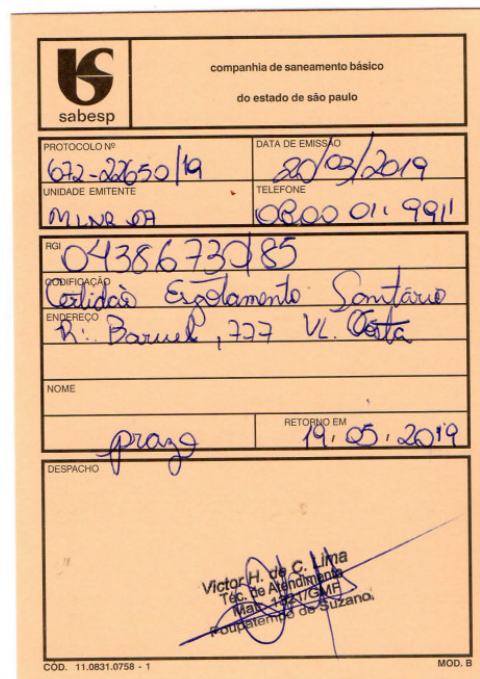 sabesp
companhia de saneamento básico
do estado de são paulo
PROTOCOLO Nº
672-22650/19
DATA DE EMISSÃO
20/03/2019
UNIDADE EMITENTE
TELEFONE
0800 011 9911
RGI
04386730/85
CODIFICAÇÃO
Certidão Esgotamento Sanitário
ENDEREÇO
R: Baruel, 777 VL. Costa
NOME
prazo
RETORNO EM
19.05.2019
DESPACHO
Victor H. de C. Lima
Téc. de Atendimento
Poupatempo de Suzano.
CÓD. 11.0831.0758 - 1
MOD. B